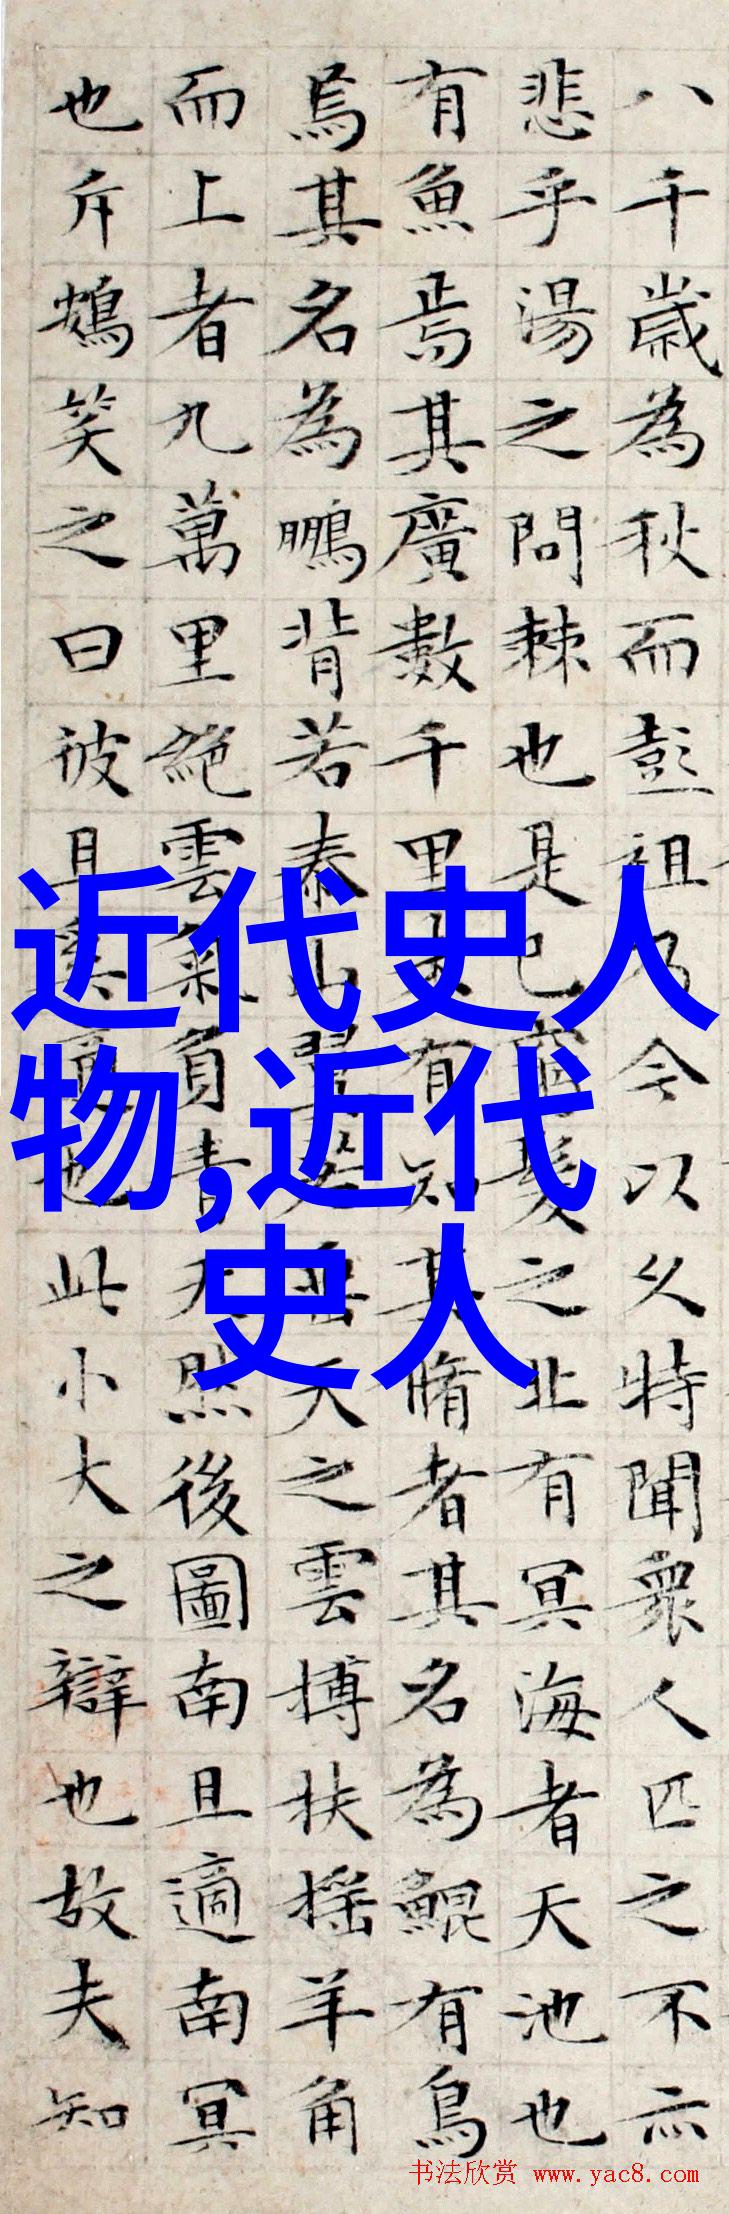 八千歳為秋而彭祖乃今以久特聞衆人匹之不亦
悲乎湯之問棘也是已窮髮之北有冥海者天池也
有魚焉其廣數千里未有知其脩者其名為鯤有鳥
焉其名為鵬背若泰山翼若垂天之雲摶扶摇羊角
而上者九萬里絶雲氣負青天然後圖南且適南冥
也斥鴳笑之曰彼且奚適也此小大之辯也故夫知
近代史人
物,近代
史人
书法欣赏 www.yac8.com